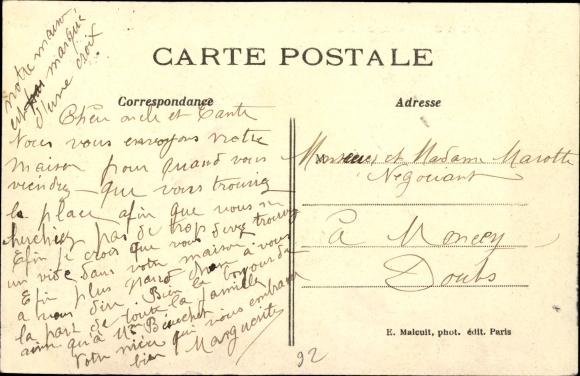 notre maison
est marqué
d'une croix
CARTE POSTALE
Correspondance
Adresse
Chèr oncle et Tante
Nous vous envoyons notre
maison pour quand vous
viendrez que vous trouviez
la place afin que vous ne
cherchiez pas de trop
Efin je crois que vous devez trouver
un vite dans votre maison
Efin plus rien à vous
à vous dire. Bien le bonjour de
la part de toute la famille
ainsi qu'à Mme
Votre nièce qui vous embrasse
bien Marguerite
Monsieur et Madame Marotte
Négociant
à Moncey
Doubs
E. Malcuit, phot. édit. Paris
92